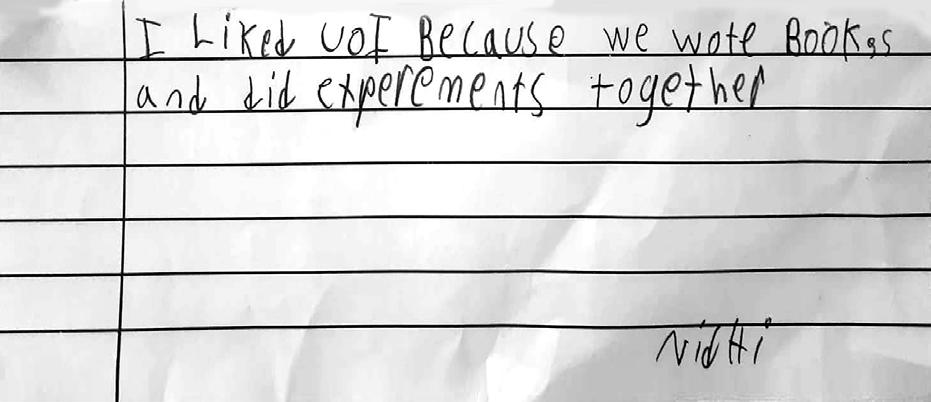 I Liked UOI Because we wote Books
and did experements together
Nidhi